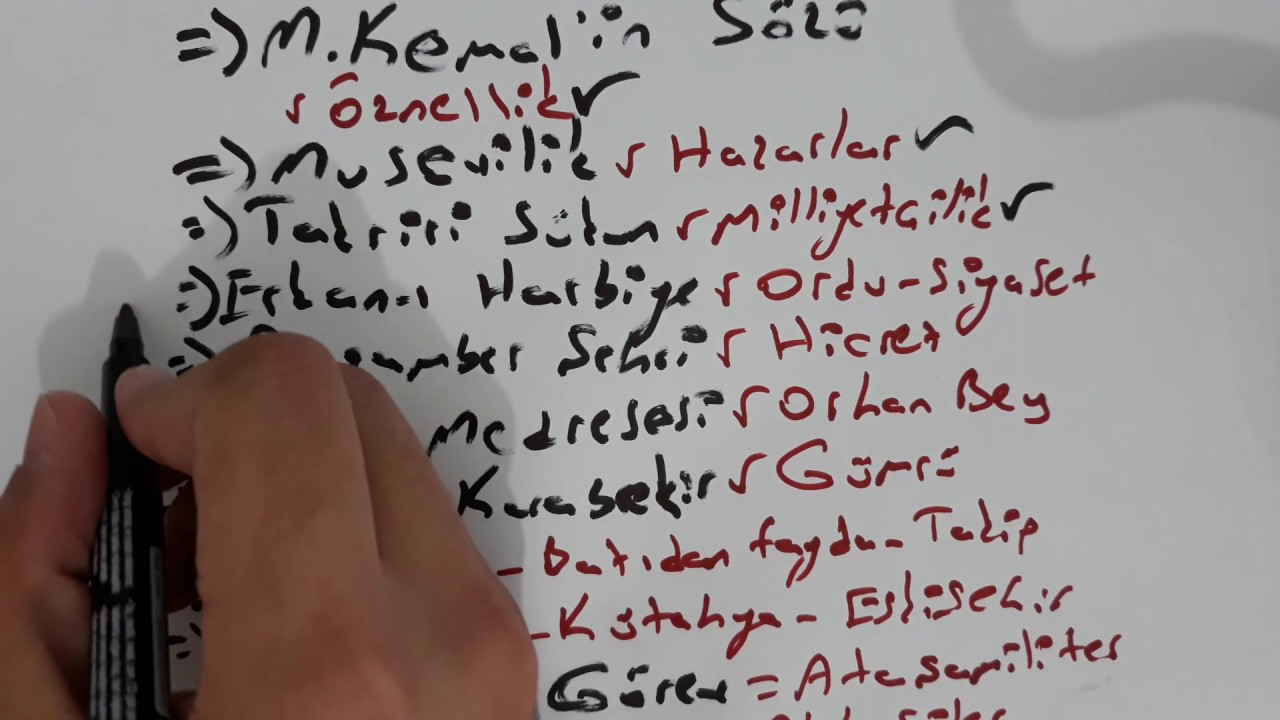 => M. Kemal'in Sözü
✓ Öznellik ✓
=> Musevilik ✓ Hazarlar ✓
=> Takriri Sükun ✓ Milliyetçilik ✓
=> Erkan-ı Harbiye ✓ Ordu-Siyaset
=> Şehri ✓ Hicret
Medresesi ✓ Orhan Bey
Karabekir ✓ Gümrü
- Batıdan fayda - Takip
- Kütahya - Eskişehir
= Ataşemiliter